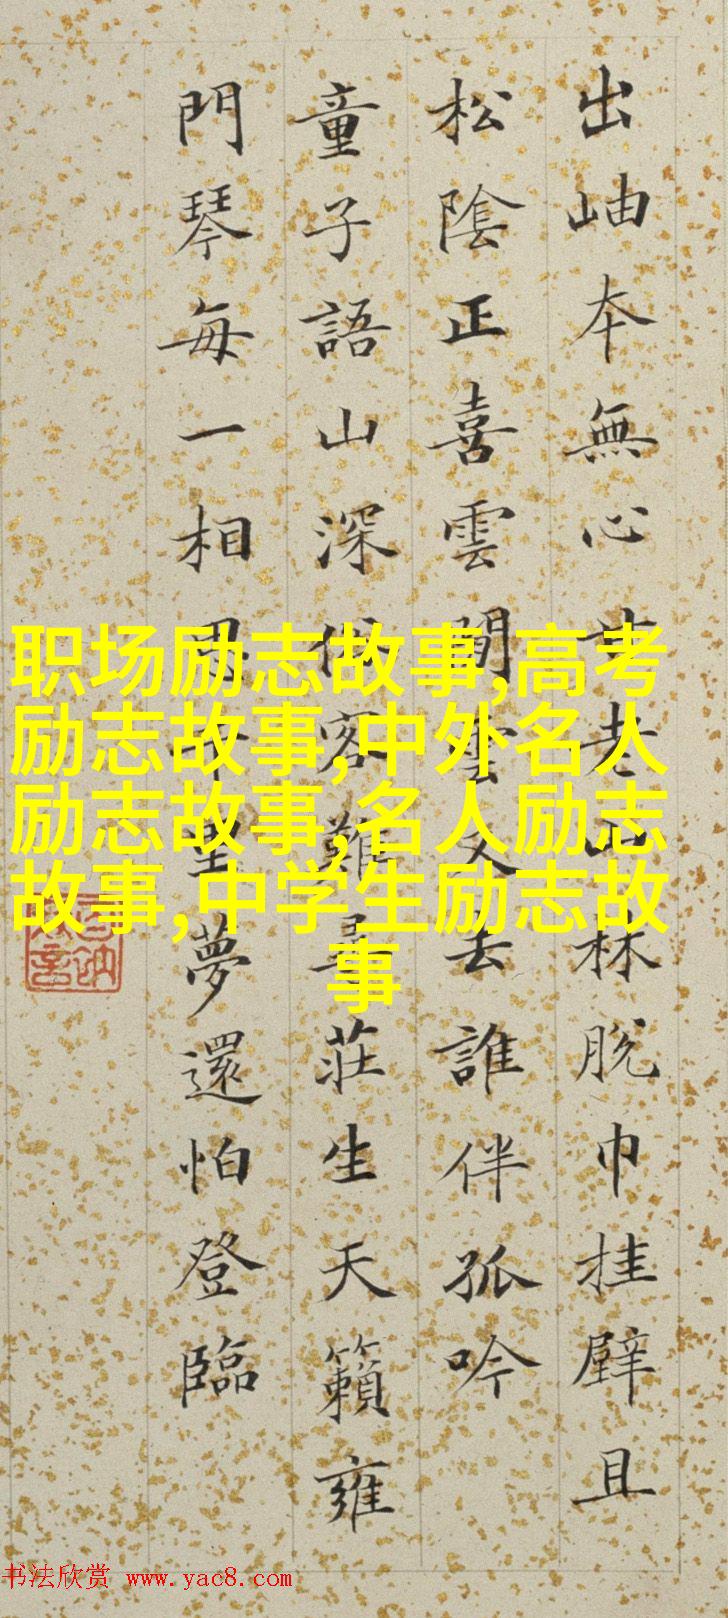 出岫本無心老林脫巾挂壁且
松陰正喜雲閒雲又去誰伴孤吟
童子語山深俗客難尋莊生天籟雍
門琴每一相千里夢還怕登臨
职场励志故事,高考
励志故事,中外名人
励志故事,名人励志
故事,中学生励志故
事
书法欣赏 www.yac8.com